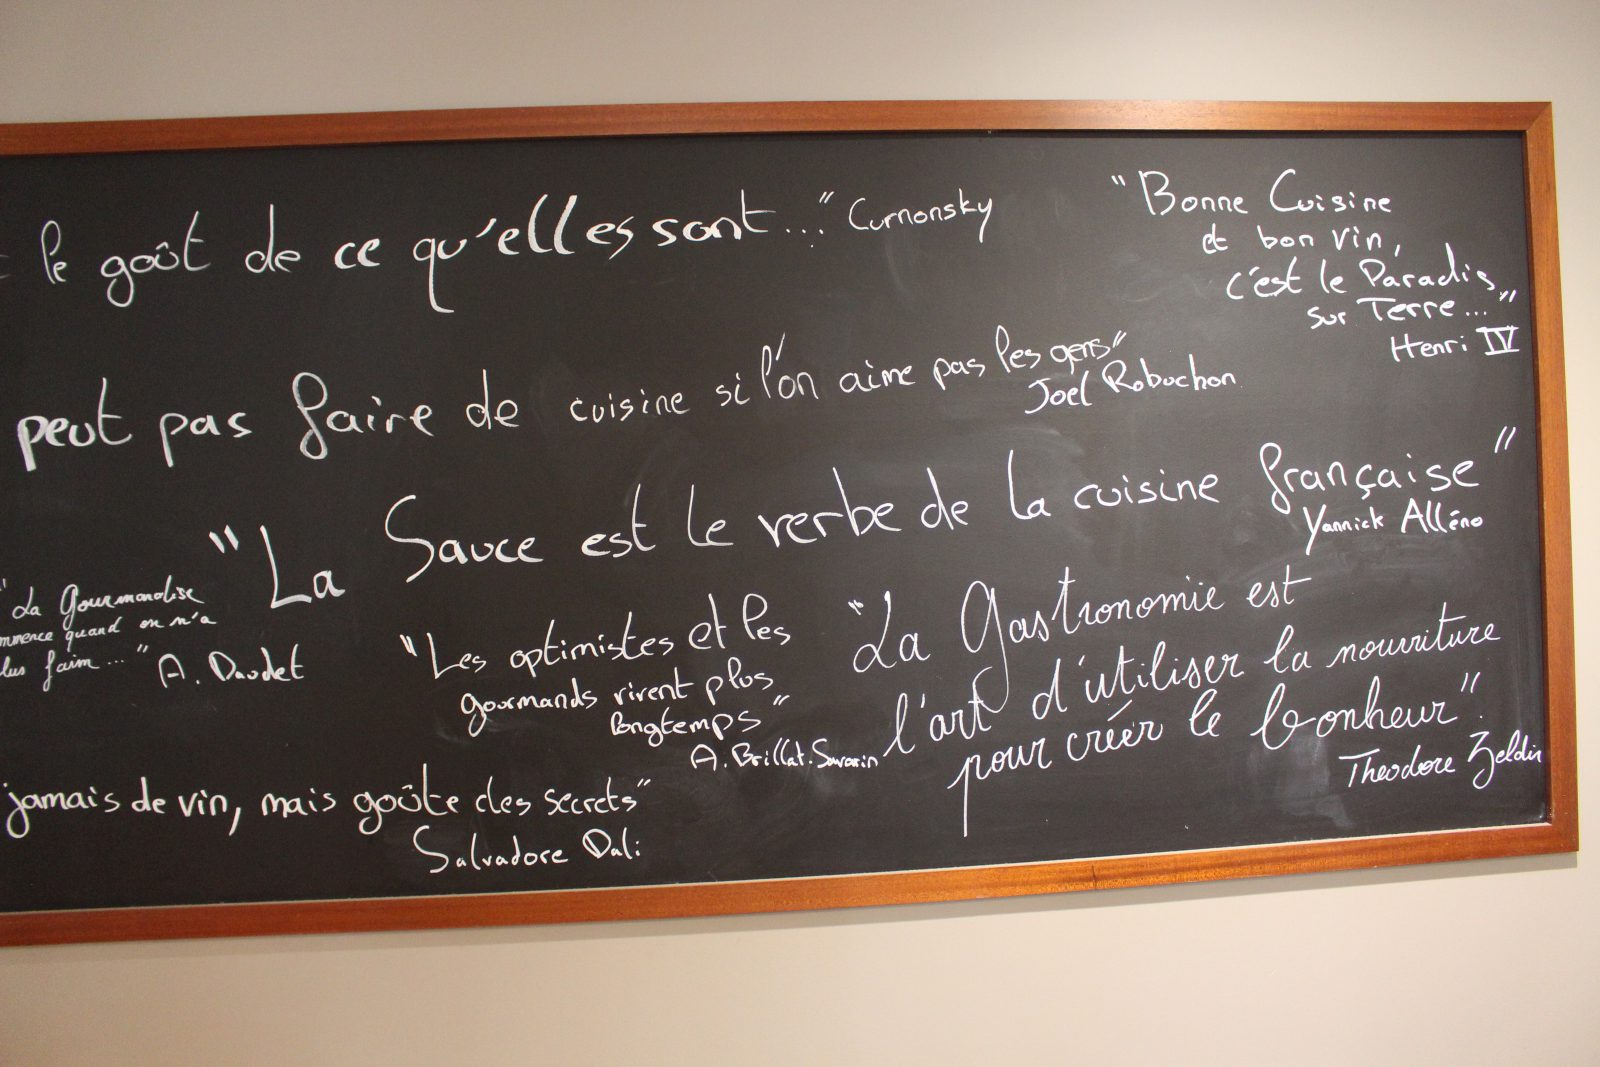 le goût de ce qu'elles sont..." Curnonsky
"Bonne Cuisine
et bon vin,
c'est le Paradis
sur Terre..."
Henri IV
peut pas faire de cuisine si l'on aime pas les gens"
Joel Robuchon
"La Sauce est le verbe de la cuisine française"
Yannick Alléno
"La Gourmandise
mmence quand on n'a
lus faim..."
A. Daudet
"Les optimistes et les
gourmands vivent plus
longtemps"
A. Brillat-Savarin
"La Gastronomie est
l'art d'utiliser la nourriture
pour créer le bonheur"
Theodore Zeldin
jamais de vin, mais goûte des secrets"
Salvadore Dali